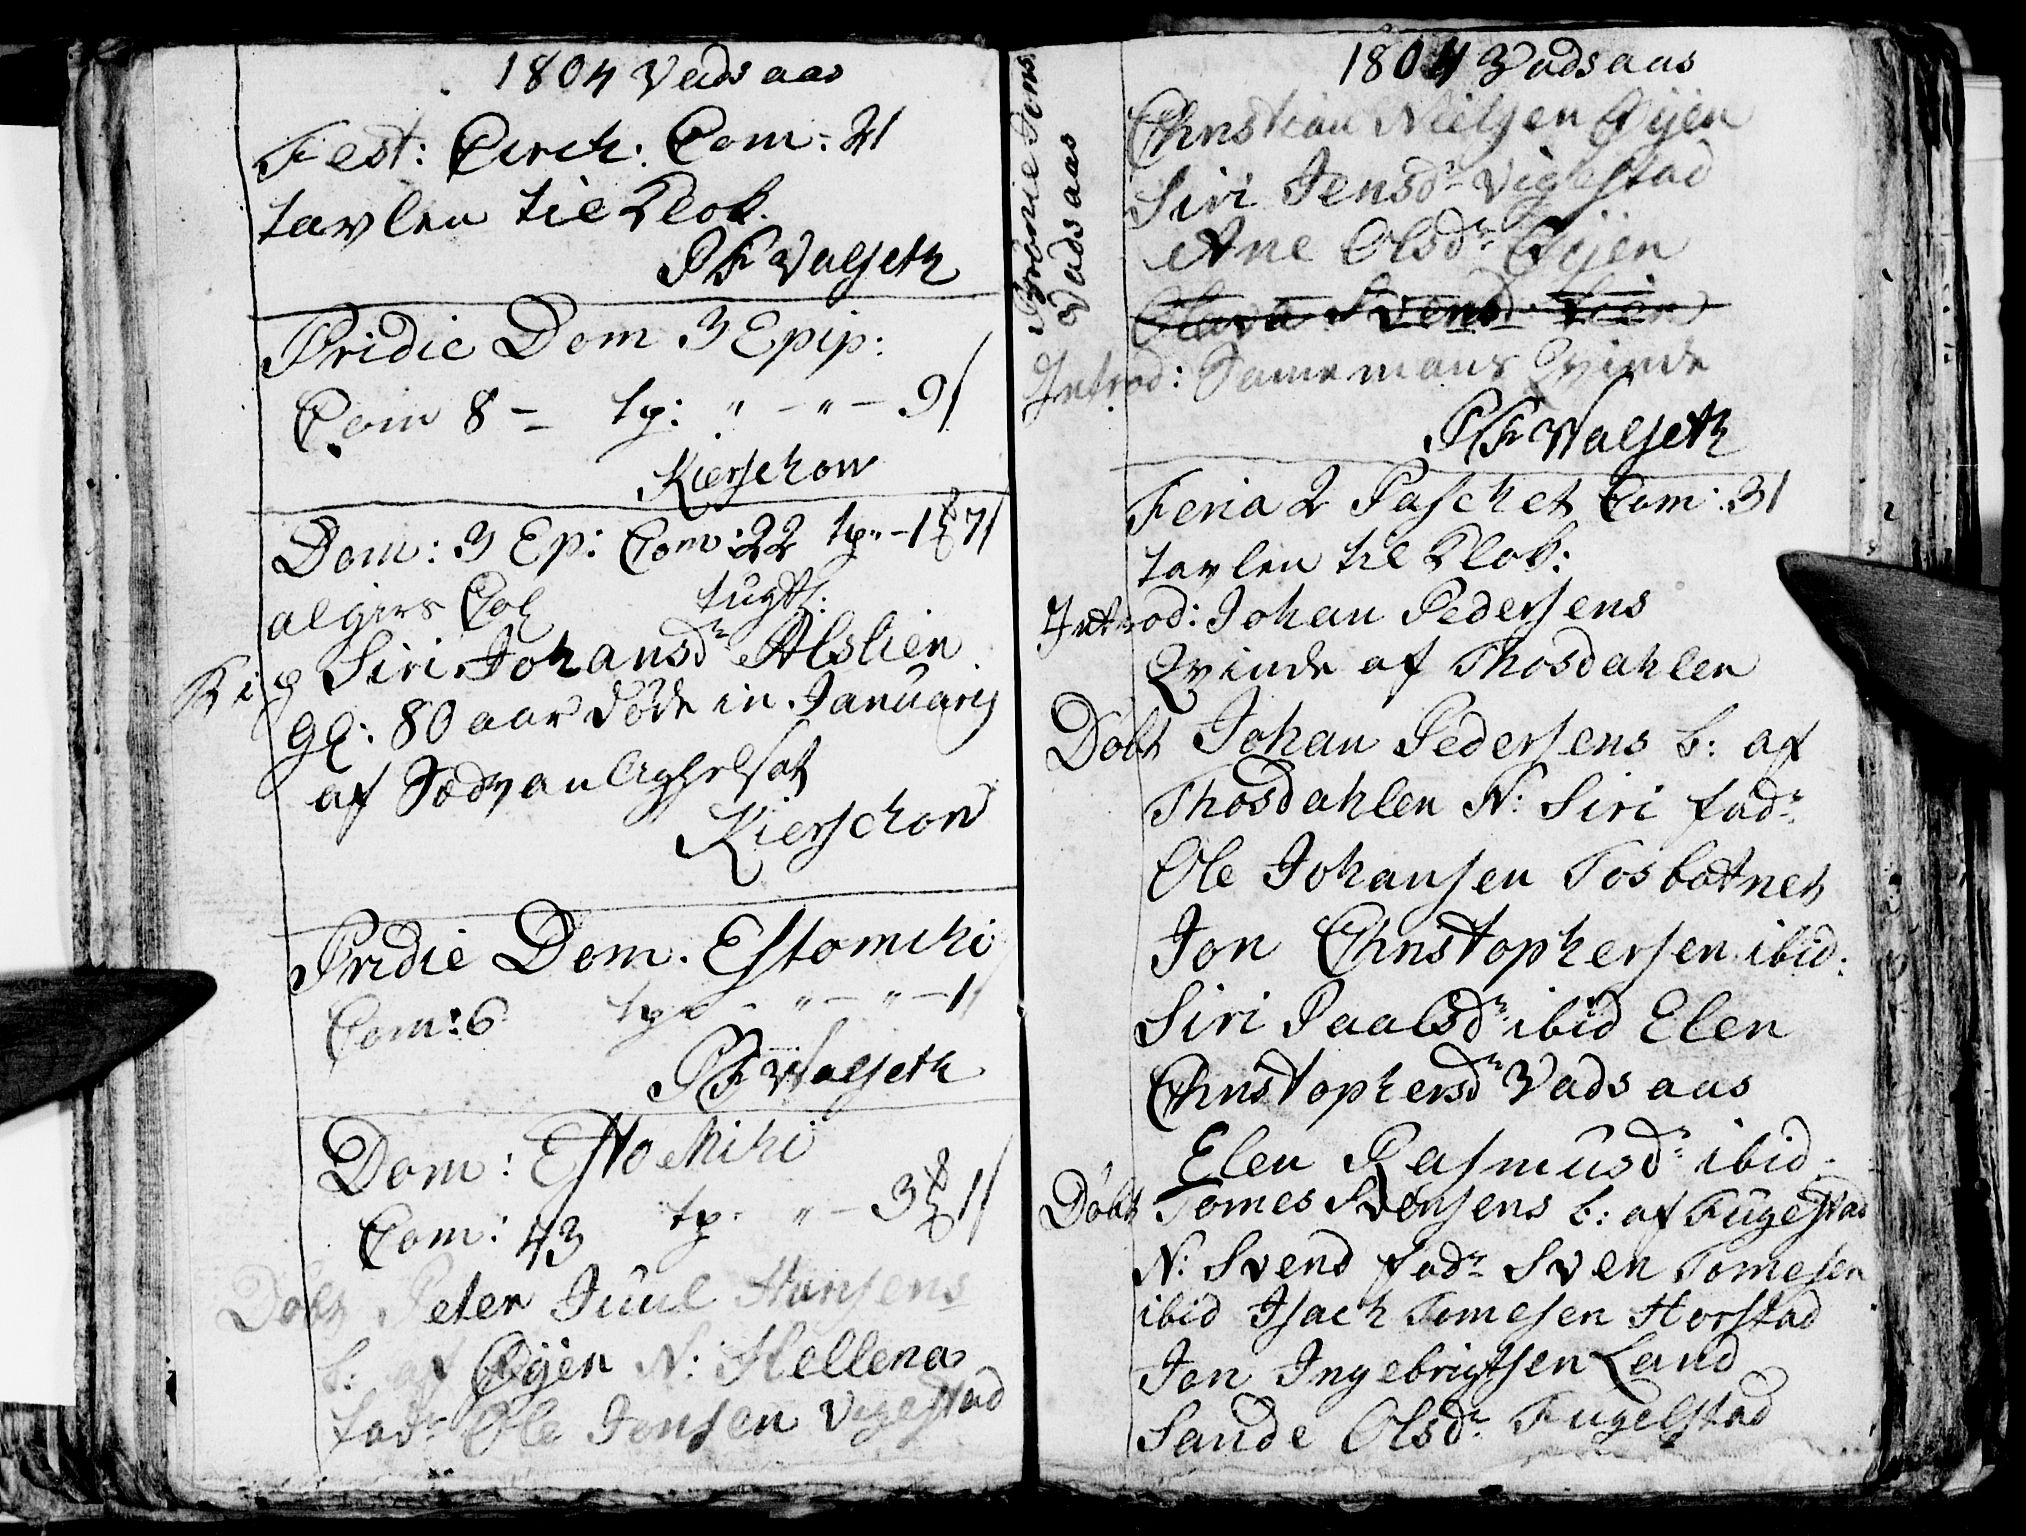 1804 Vadsaas
Fest: Circk: Com: 21
tavlen til Klok.
P F Valseth
Pridie Dom 3 Epip:
Com 8 – tp: " – " – 9
Kierschow
Dom: 3 Ep: Com: 22 tp – 1 7
Siri Johansdr Alslien
gl: 80 aar döde in Januarij
af
Kierschow
Pridie Dom. Estomihi
Com: 6 tp: – " – " – 1
P F Walseth
Dom: Esto Mihi
Com: 43 tp " – 3 1
Döbt Peter Juul Hansens
b: af Öyen N: Hellena
fadr Ole Jensen Vegestad
1804 Vadsaas
Christian Nielsen Öyen
Siri Jensdr Vigestad
Ane Olsdr Öyen
Introd: Samme mans Qvinde
P F Walseth
Feria 2 Paschet Com: 31
tavlen til Klok:
Introd: Johan Pedersens
Qvinde af Thosdahlen
Döbt Johan Pedersens b: af
Thosdahlen N: Siri fadr
Ole Johansen Tosbotnet
Jon Christophersen ibid:
Siri Paalsdr ibid Elen
Christophersdr Vadsaas
Elen Rasmusdr ibid
Döbt Tomes Svensens b: af Fugestad
N: Svend fadr Sven Tomesen
ibid Isach Tomesen Horstad
Jon Ingebrigtsen Land
Sande Olsdr Fugelstad
Vadsaas